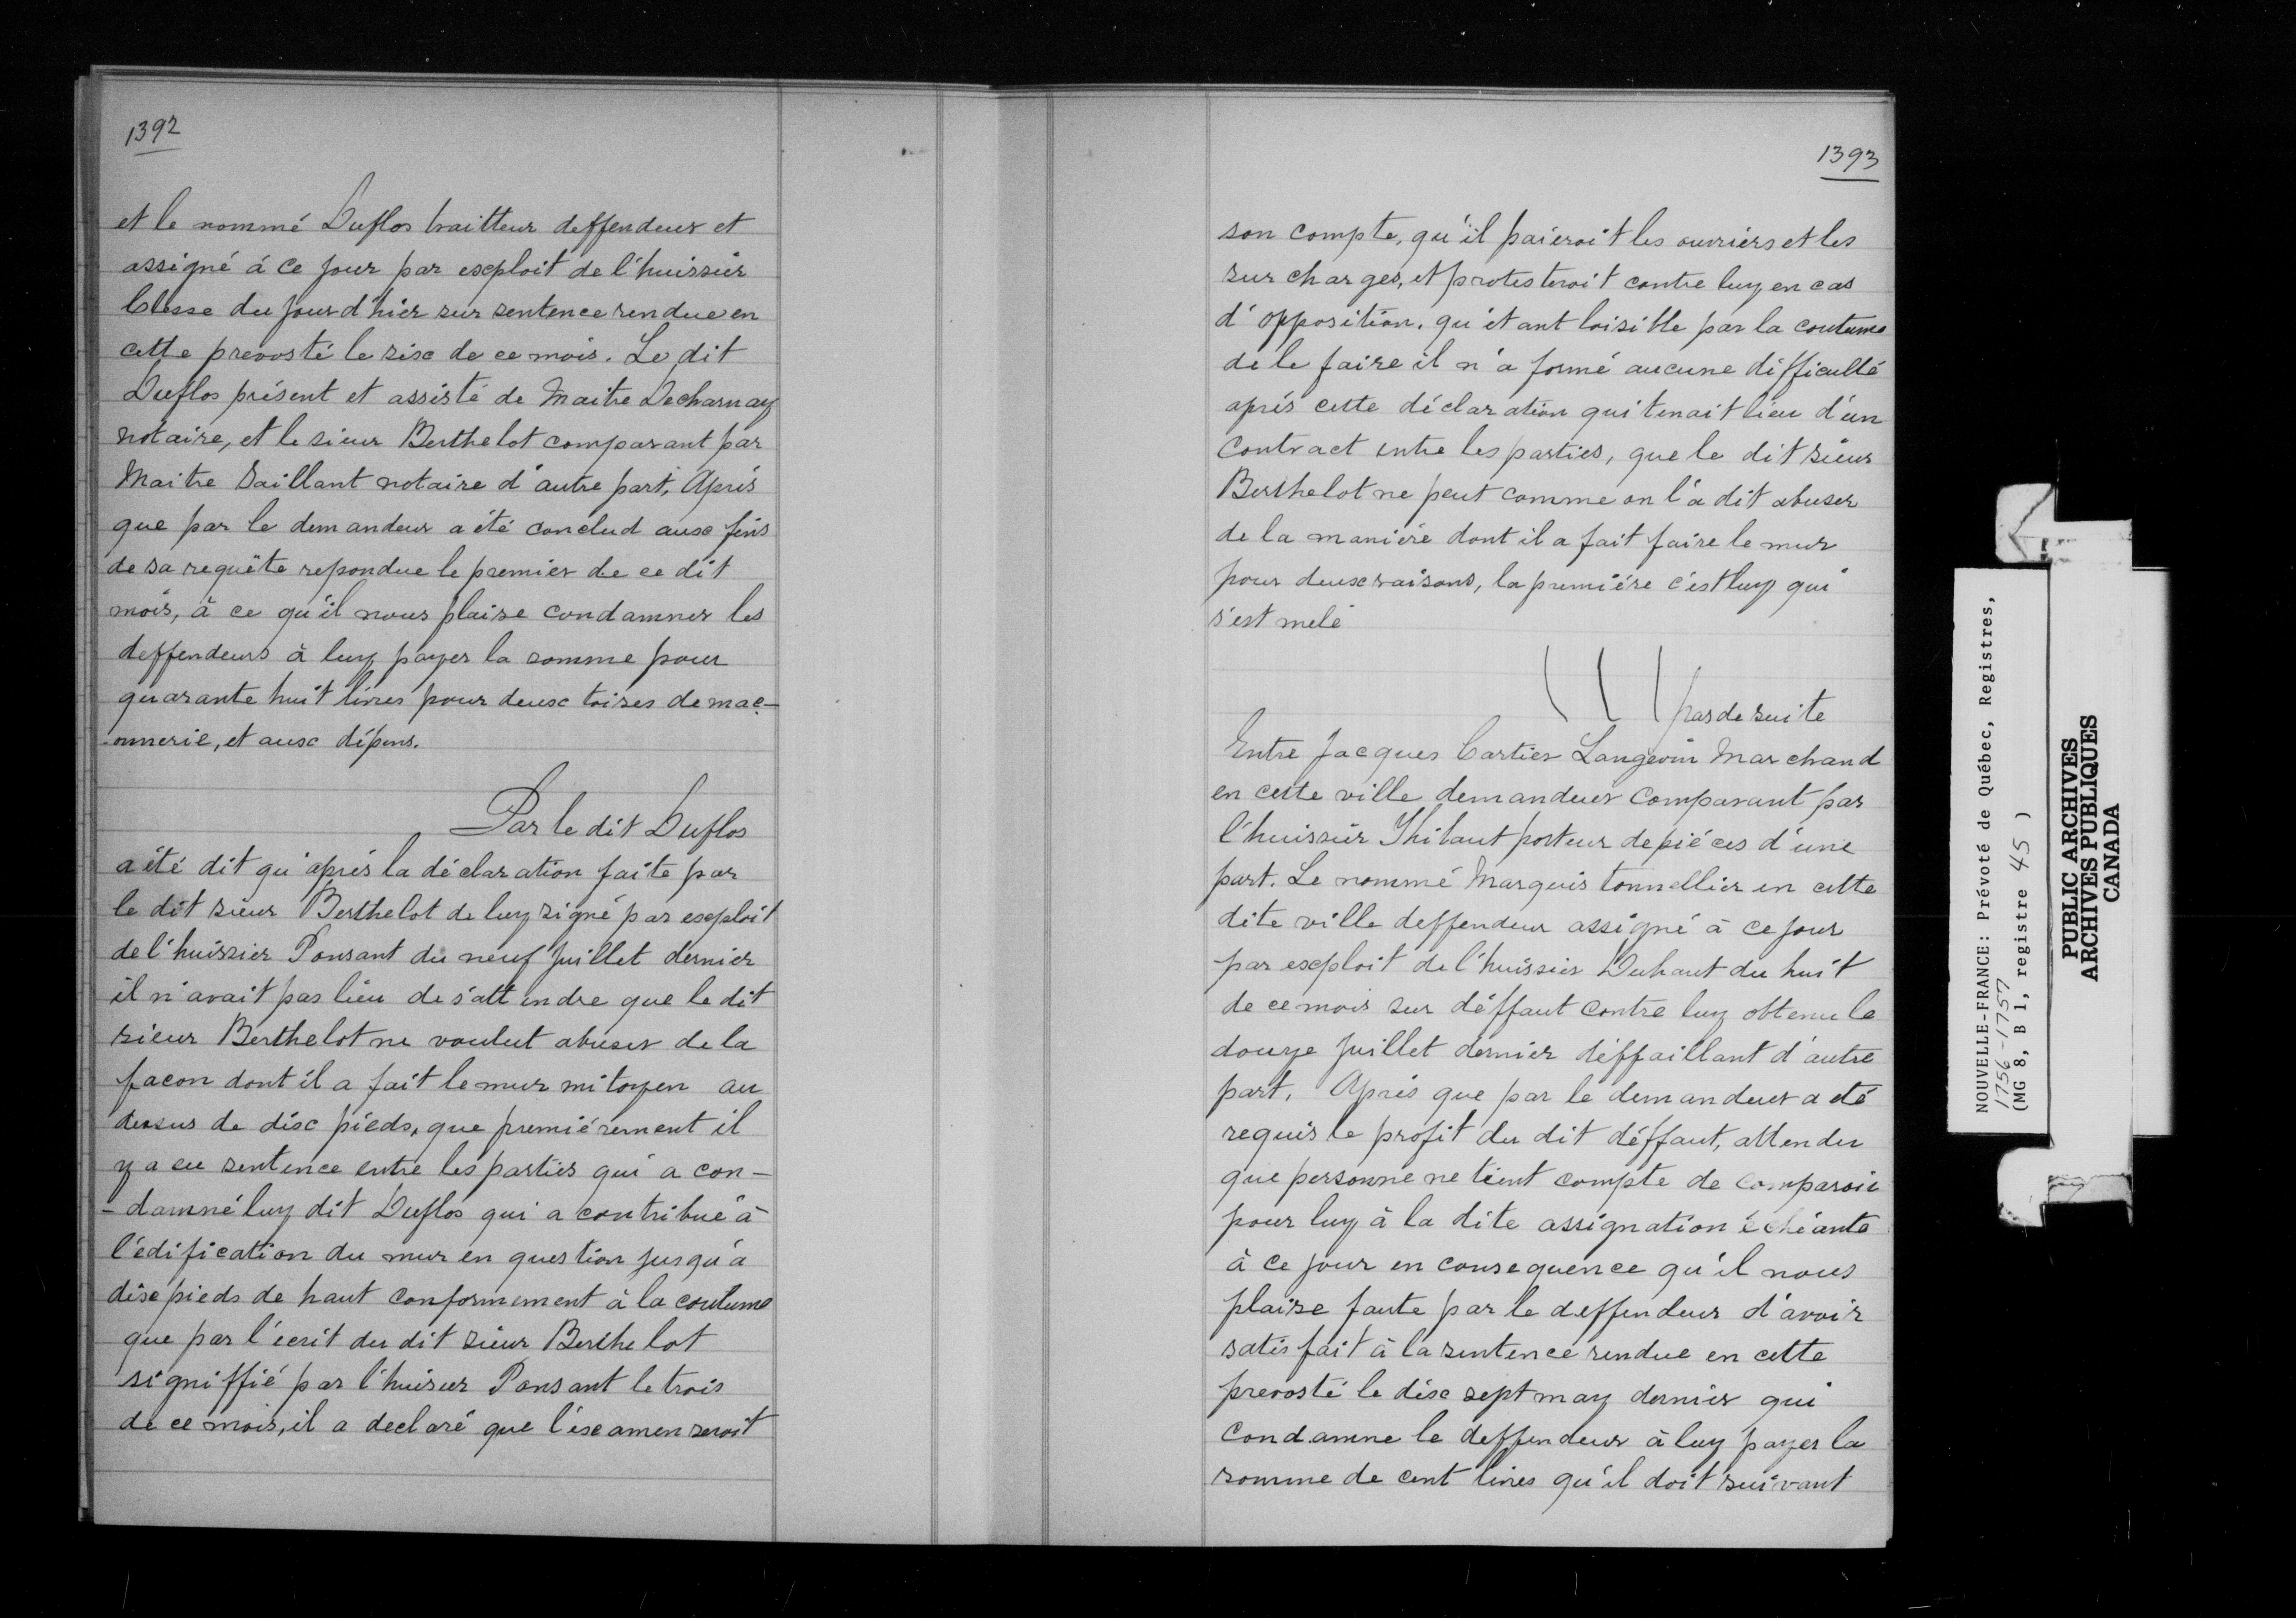 1392
et le nommé Duflos traitteur deffendeur et
assigné à ce jour par exploit de l'huissier
Clesse du jour d'hier sur sentence rendue en
cette prevosté le six de ce mois. Le dit
Duflos présent et assisté de Maitre Decharnay
notaire, et le sieur Berthelot comparant par
Maitre Saillant notaire d'autre part, Après
que par le demandeur a été conclud aux fins
de sa requête repondue le premier de ce dit
mois, à ce qu'il nous plaise condamner les
deffendeurs à luy payer la somme pour
quarante huit livres pour deux toises de maç-
-onnerie, et aux dépens.
Par le dit Duflos
a été dit qu'après la déclaration faite par
le dit sieur Berthelot de luy signé par exploit
de l'huissier Ponsant du neuf juillet dernier
il n'avait pas lieu de s'attendre que le dit
sieur Berthelot ne voulut abuser de la
facon dont il a fait le mur mitoyen au
dessus de dix pieds, que premièrement il
y a eu sentence entre les parties qui a con-
-damné luy dit Duflos qui a contribué à
l'édification du mur en question jusqu'à
dix pieds de haut conformement à la coutume
que par l'écrit du dit sieur Berthelot
signiffié par l'huisier Ponsant le trois
de ce mois, il a declaré que l'examen seroit
1393
son compte, qu'il paieroit les ouvriers et les
sur charges, et protesteroit contre luy en cas
d'opposition. qu'étant loisible par la coutume
de le faire il n'a formé aucune difficulté
après cette déclaration qui tenait lieu d'un
contract entre les parties, que le dit sieur
Berthelot ne peut comme on l'a dit abuser
de la manière dont il a fait faire le mur
pour deux raisons, la première c'est luy qui
s'est melé
pas de suite
Entre Jacques Cartier Langevin Marchand
en cette ville demandeur comparant par
l'huissier Thibaut porteur de pièces d'une
part. Le nommé Marquis tonnellier en cette
dite ville deffendeur assigné à ce jour
par exploit de l'huissier Duhaut du huit
de ce mois sur déffaut contre luy obtenu le
douze juillet dernier déffaillant d'autre
part, Après que par le demandeur a été
requis le profit du dit déffaut, attendu
que personne ne tient compte de comparoir
pour luy à la dite assignation échéante
à ce jour en consequence qu'il nous
plaise faute par le deffendeur d'avoir
satisfait à la sentence rendue en cette
prevosté le dix sept may dernier qui
condamne le deffendeur à luy payer la
somme de cent livres qu'il doit suivant
NOUVELLE-FRANCE: Prévoté de Québec, Registres,
1756-1757
(MG 8, B 1, registre 45 )
PUBLIC ARCHIVES
ARCHIVES PUBLIQUES
CANADA